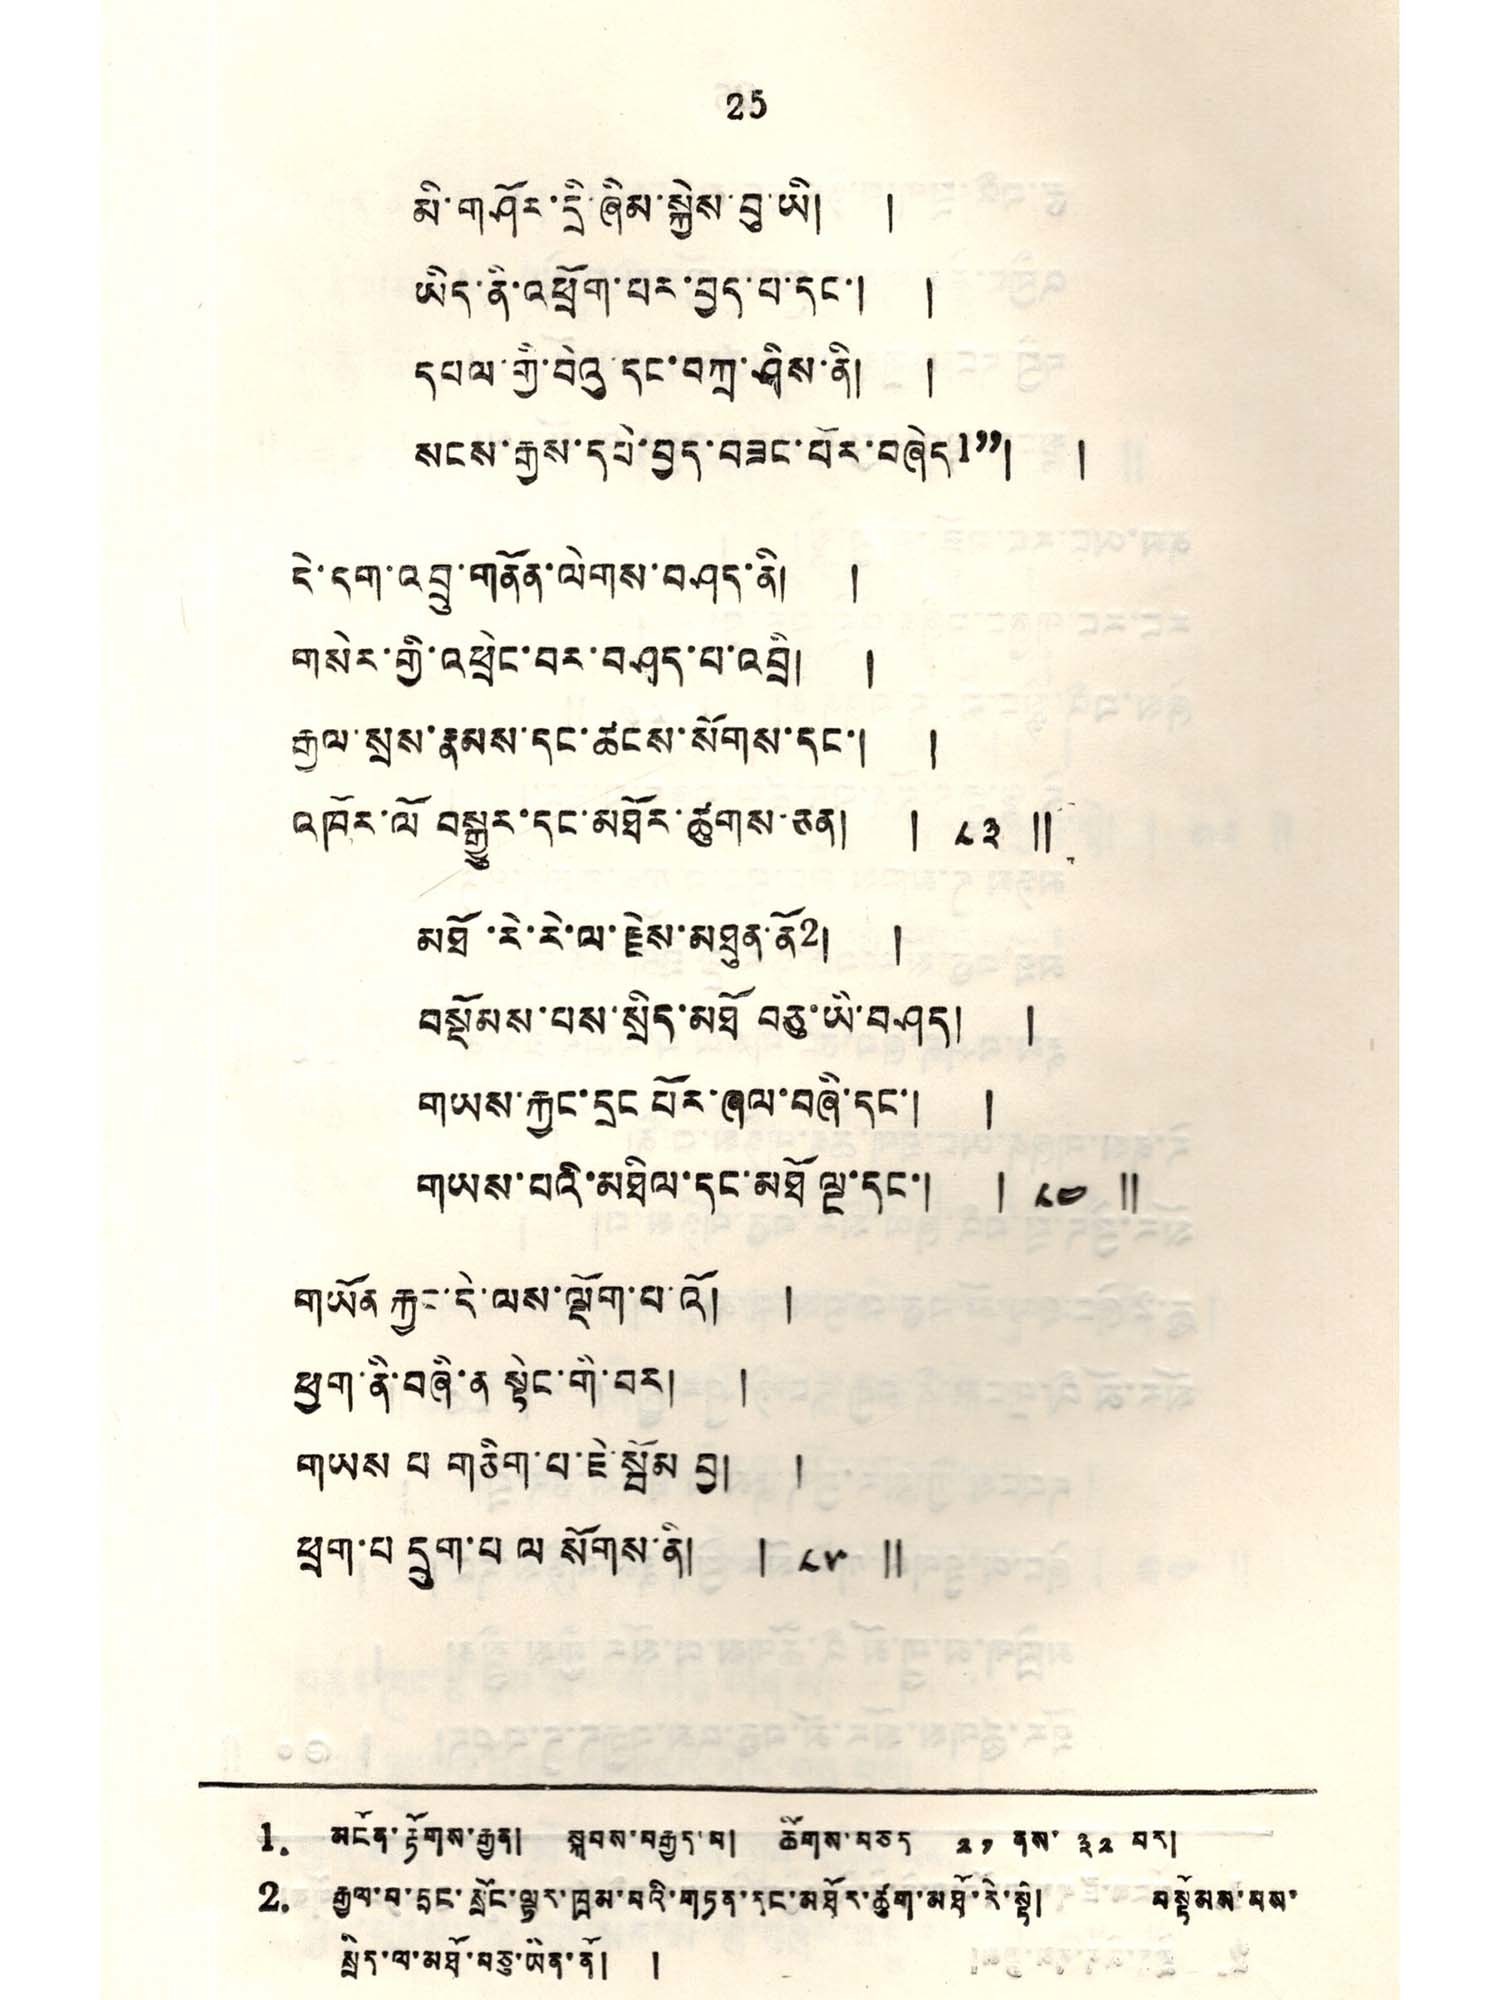 25
མི་གཤོར་དྲི་ཞིམ་སྐྱེས་བུ་ཡི། །
ཡིད་ནི་འཕྲོག་པར་བྱད་པ་དང་། །
དཔལ་གྱི་བེའུ་དང་བཀྲ་ཤིས་ནི། །
སངས་རྒྱས་དཔེ་བྱད་བཟང་པོར་བཞེད1”། །
ངེ་དག་འབྲུ་གནོན་ལེགས་བཤད་ནི། །
གསེར་གྱི་འཕྲེང་བར་བཤད་པ་འབྲི། །
རྒྱལ་སྲས་རྣམས་དང་ཚངས་སོགས་དང་། །
འཁོར་ལོ་བསྒྱུར་དང་མཐོར་ཚུགས་ཅན། ། ༨༣ ༎
མཐོ་རེ་རེ་ལ་རྗེས་མཐུན་ནོ2། །
བསྡོམས་པས་སྲིད་མཐོ་བཅུ་ཡི་བཤད། །
གཡས་རྐྱང་དྲང་པོར་ཞལ་བཞི་དང་། །
གཡས་པའི་མཐིལ་དང་མཐོ་ལྔ་དང་། ། ༨༤ ༎
གཡོན་རྐྱང་དེ་ལས་ལྡོག་པ་འོ། །
ཕྱག་ནི་བཞི་ན་སྟེང་གི་བར། །
གཡས་པ་གཅིག་པ་རྗེ་སྒྲོམ་བྱ། །
ཕྲག་པ་དྲུག་པ་ལ་སོགས་ནི། ། ༨༥ ༎
1. མངོན་རྟོགས་རྒྱན། སྐབས་བརྒྱད་པ། ཚིགས་བཅད ༢༡ ནས་ ༣༢ བར།
2. རྒྱལ་བ་དྲང་སྲོང་ལྟར་ཁྲམ་བའི་གཏན་དང་མཐོར་ཚུག་མཐོ་རེ་སྟེ། བསྡོམས་པས་
སྲིད་ལ་མཐོ་བཅུ་ཡིན་ནོ། །